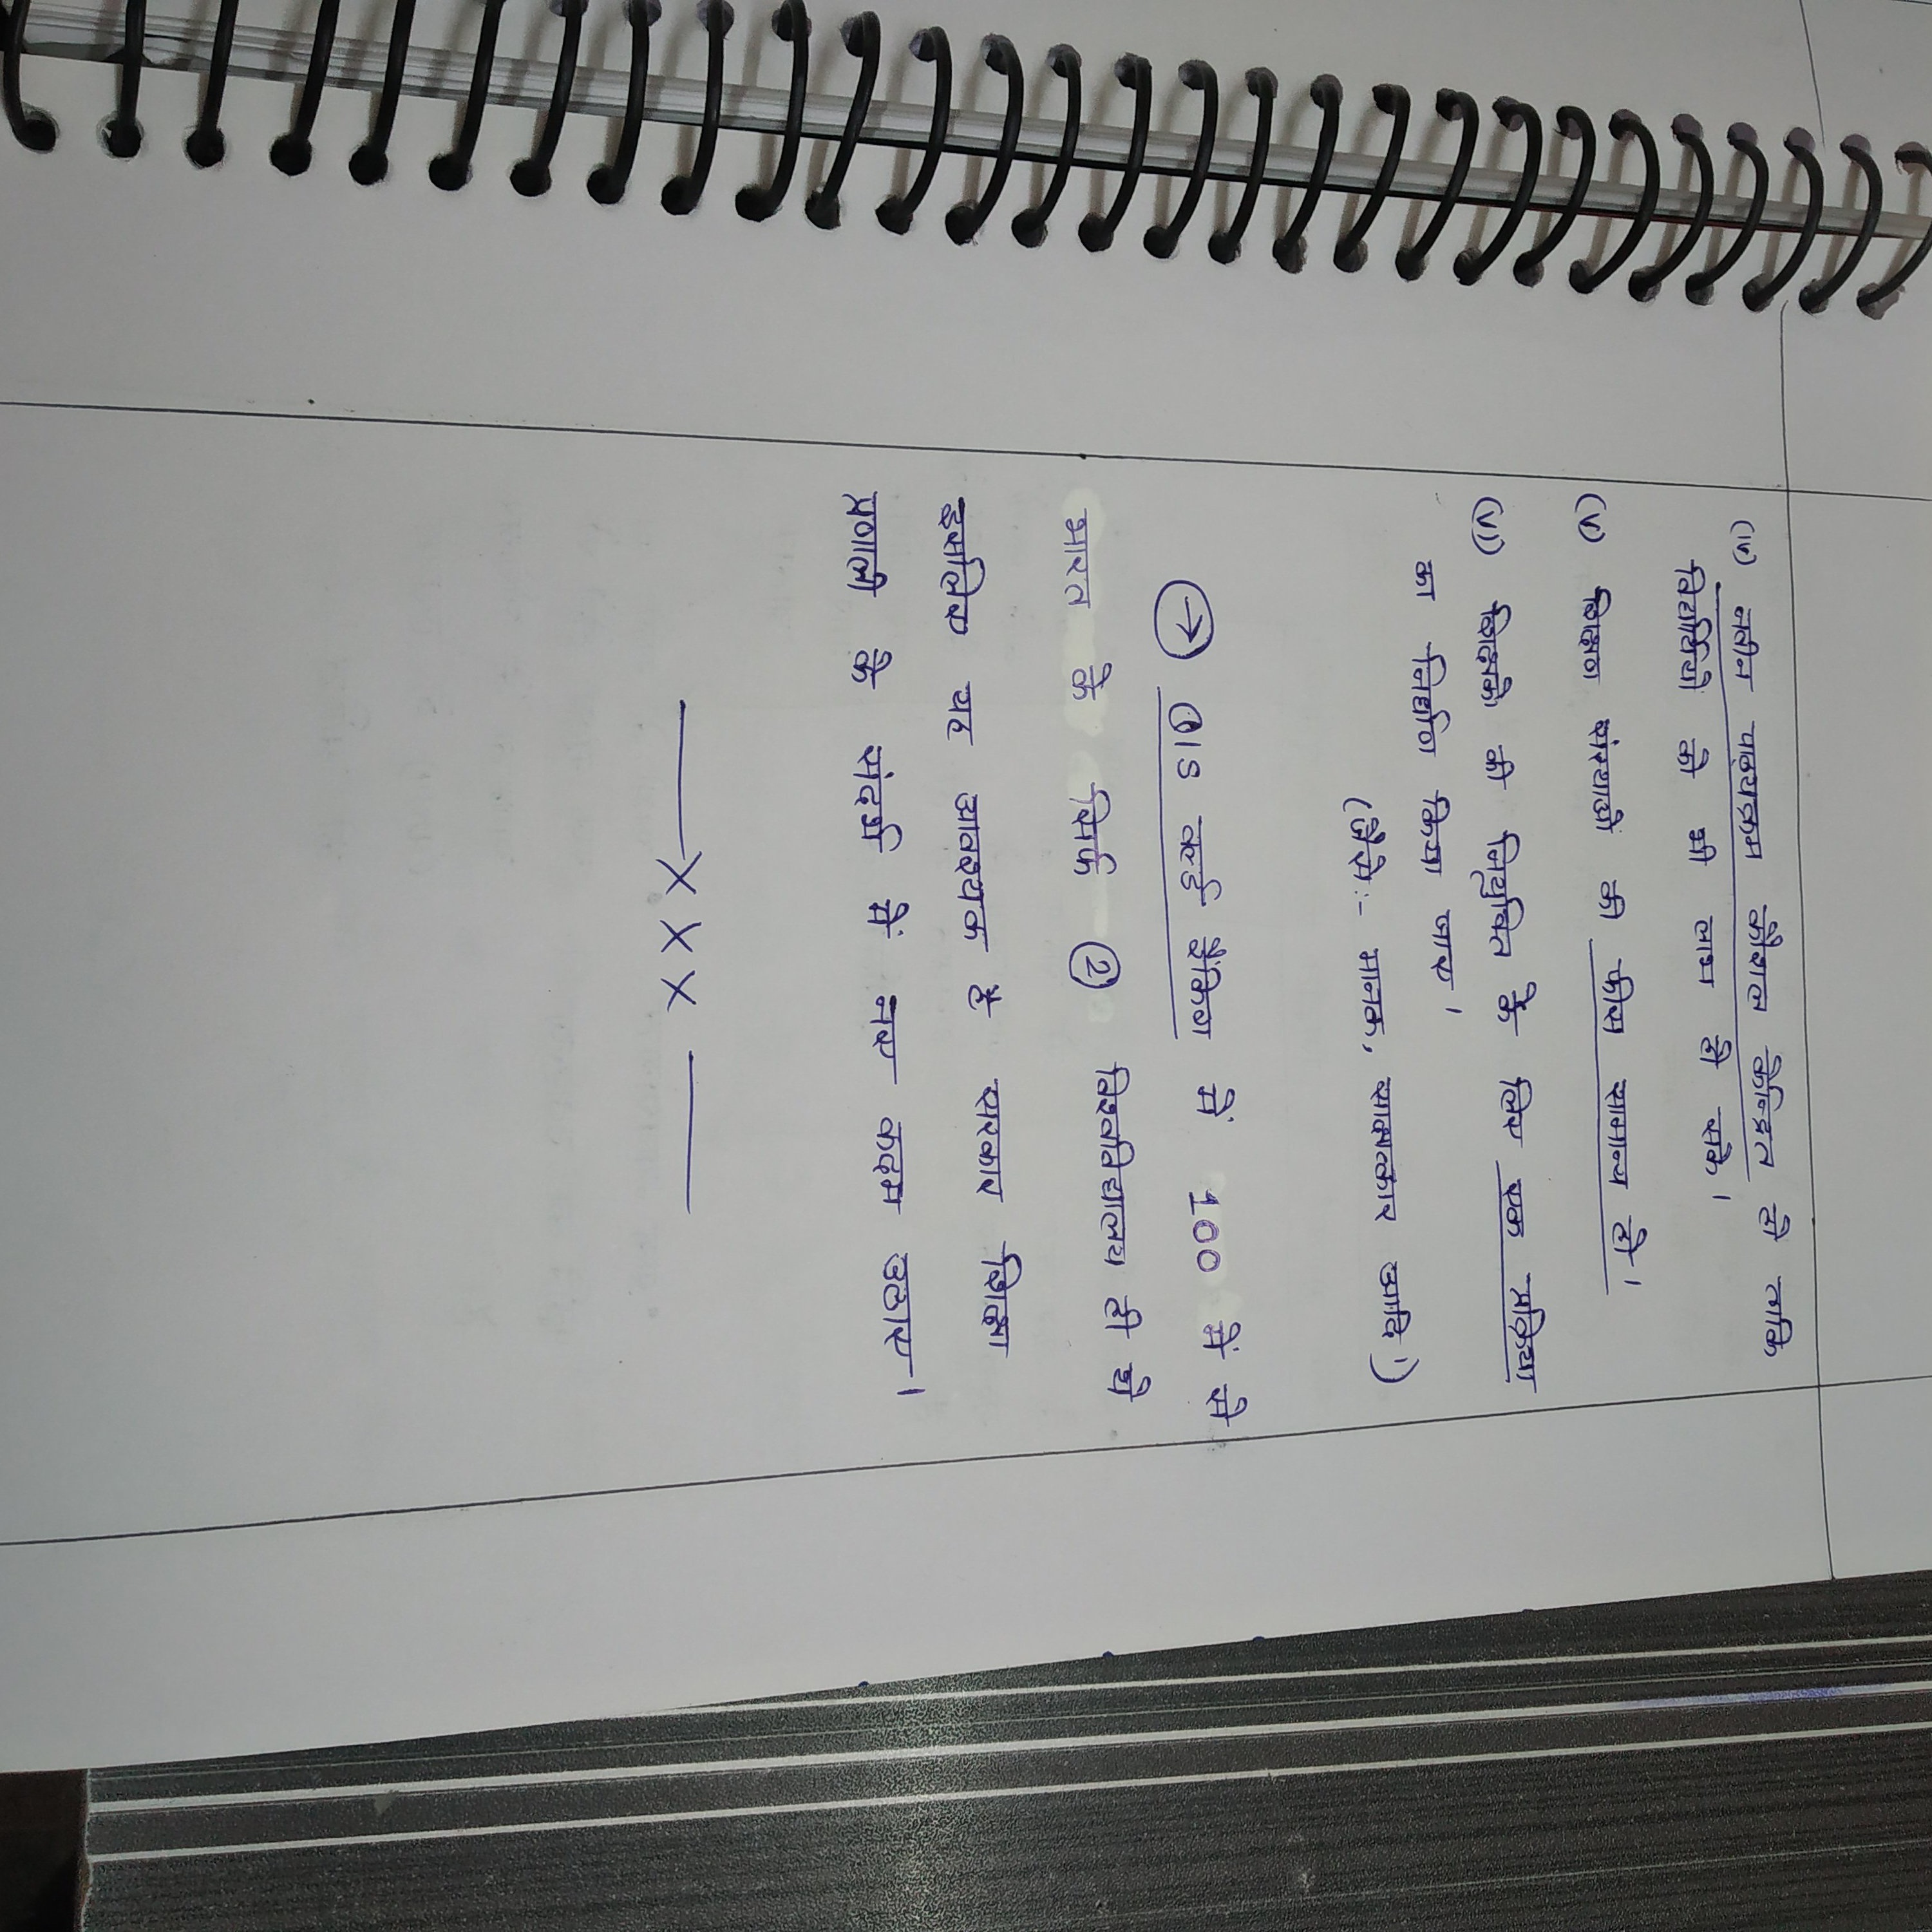 (iv) नवीन पाठ्यक्रम कौशल केन्द्रित हो ताकि
विद्यार्थियों को भी लाभ हो सके।
(v) शिक्षण संस्थाओं की फीस सामान्य हो।
(vi) शिक्षकों की नियुक्ति के लिए एक प्रक्रिया
का निर्धारण किया जाए।
(जैसे:- मानक, साक्षात्कार आदि।)
→ QIS वर्ल्ड रैंकिंग में 100 में से
भारत के सिर्फ 2 विश्वविद्यालय ही थे
इसलिए यह आवश्यक है सरकार शिक्षा
प्रणाली के संदर्भ में नए कदम उठाए।
——XXX——